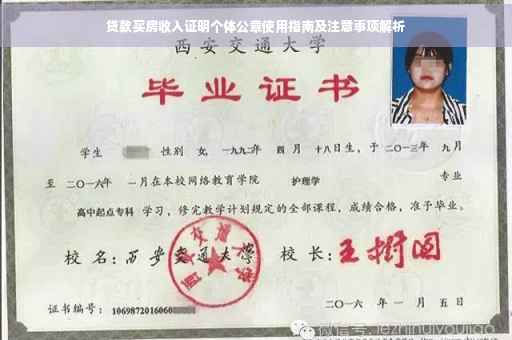 贷款买房收入证明个体公章使用指南及注意事项解析
西安交通大学
毕业证书
学生 性别 女，一九九二年 四月 十八日生，于二〇一三年 九月
至 二〇一六年 一月在本校网络教育学院 护理学 专业
高中起点专科 学习，修完教学计划规定的全部课程，成绩合格，准予毕业。
校名：西安交通大学 校长：王树国
西安交通大学
证书编号：1069872016060
二〇一六年 一月五日
微信号: jezhihuiyoujiao